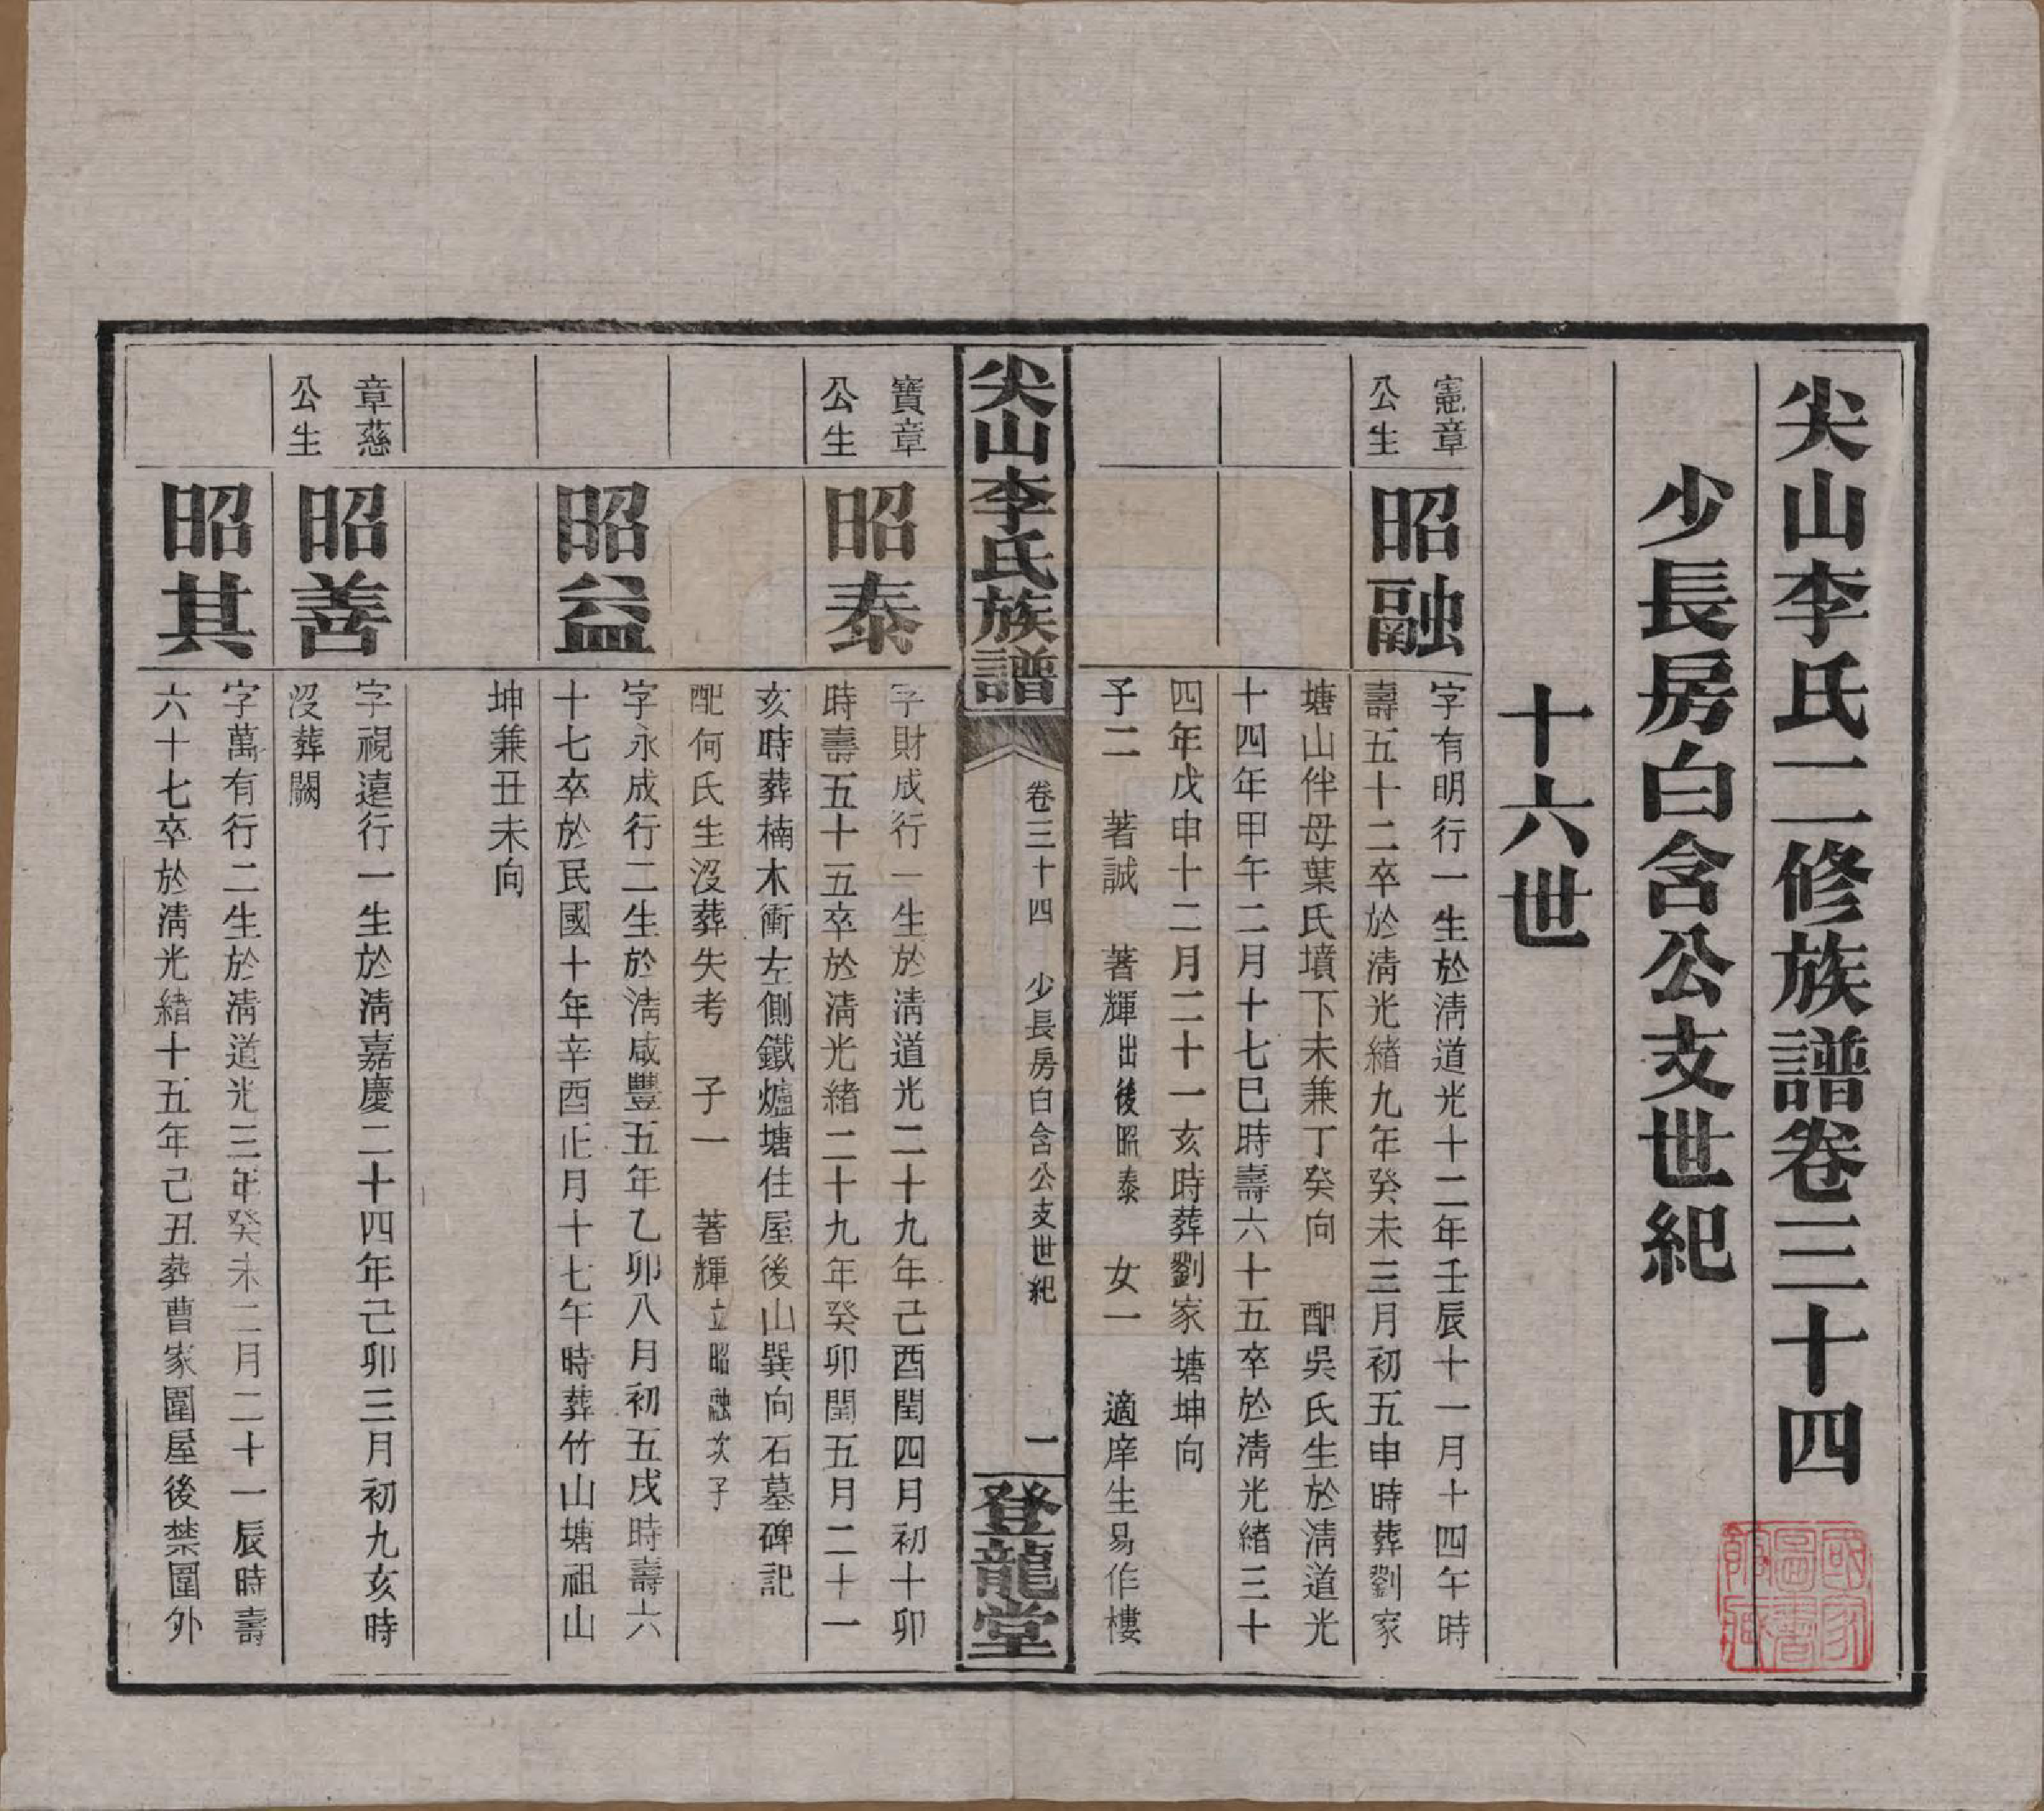 尖山李氏二修族譜卷三十四
少長房白含公支世紀
十六世
憲章
公生
昭融
字有明行一生於淸道光十二年壬辰十一月十四午時
壽五十二卒於淸光緒九年癸未三月初五申時葬劉家
塘山伴母葉氏墳下未兼丁癸向 配吳氏生於淸道光
十四年甲午二月十七巳時壽六十五卒於淸光緒三十
四年戊申十二月二十一亥時葬劉家塘坤向
子二 著誠 著輝出後昭泰 女一 適庠生易作樓
尖山李氏族譜
卷三十四 少長房白含公支世紀
一
登龍堂
寶章
公生
昭泰
字財成行一生於淸道光二十九年己酉閏四月初十卯
時壽五十五卒於淸光緒二十九年癸卯閏五月二十一
亥時葬楠木衝左側鐵爐塘住屋後山巽向石墓碑記
配何氏生沒葬失考 子一 著輝立昭融次子
昭益
字永成行二生於淸咸豐五年乙卯八月初五戌時壽六
十七卒於民國十年辛酉正月十七午時葬竹山塘祖山
坤兼丑未向
章慈
公生
昭善
字視遠行一生於淸嘉慶二十四年己卯三月初九亥時
沒葬闕
昭其
字萬有行二生於淸道光三年癸未二月二十一辰時壽
六十七卒於淸光緒十五年己丑葬曹家園屋後禁園外
國家
圖書
館藏